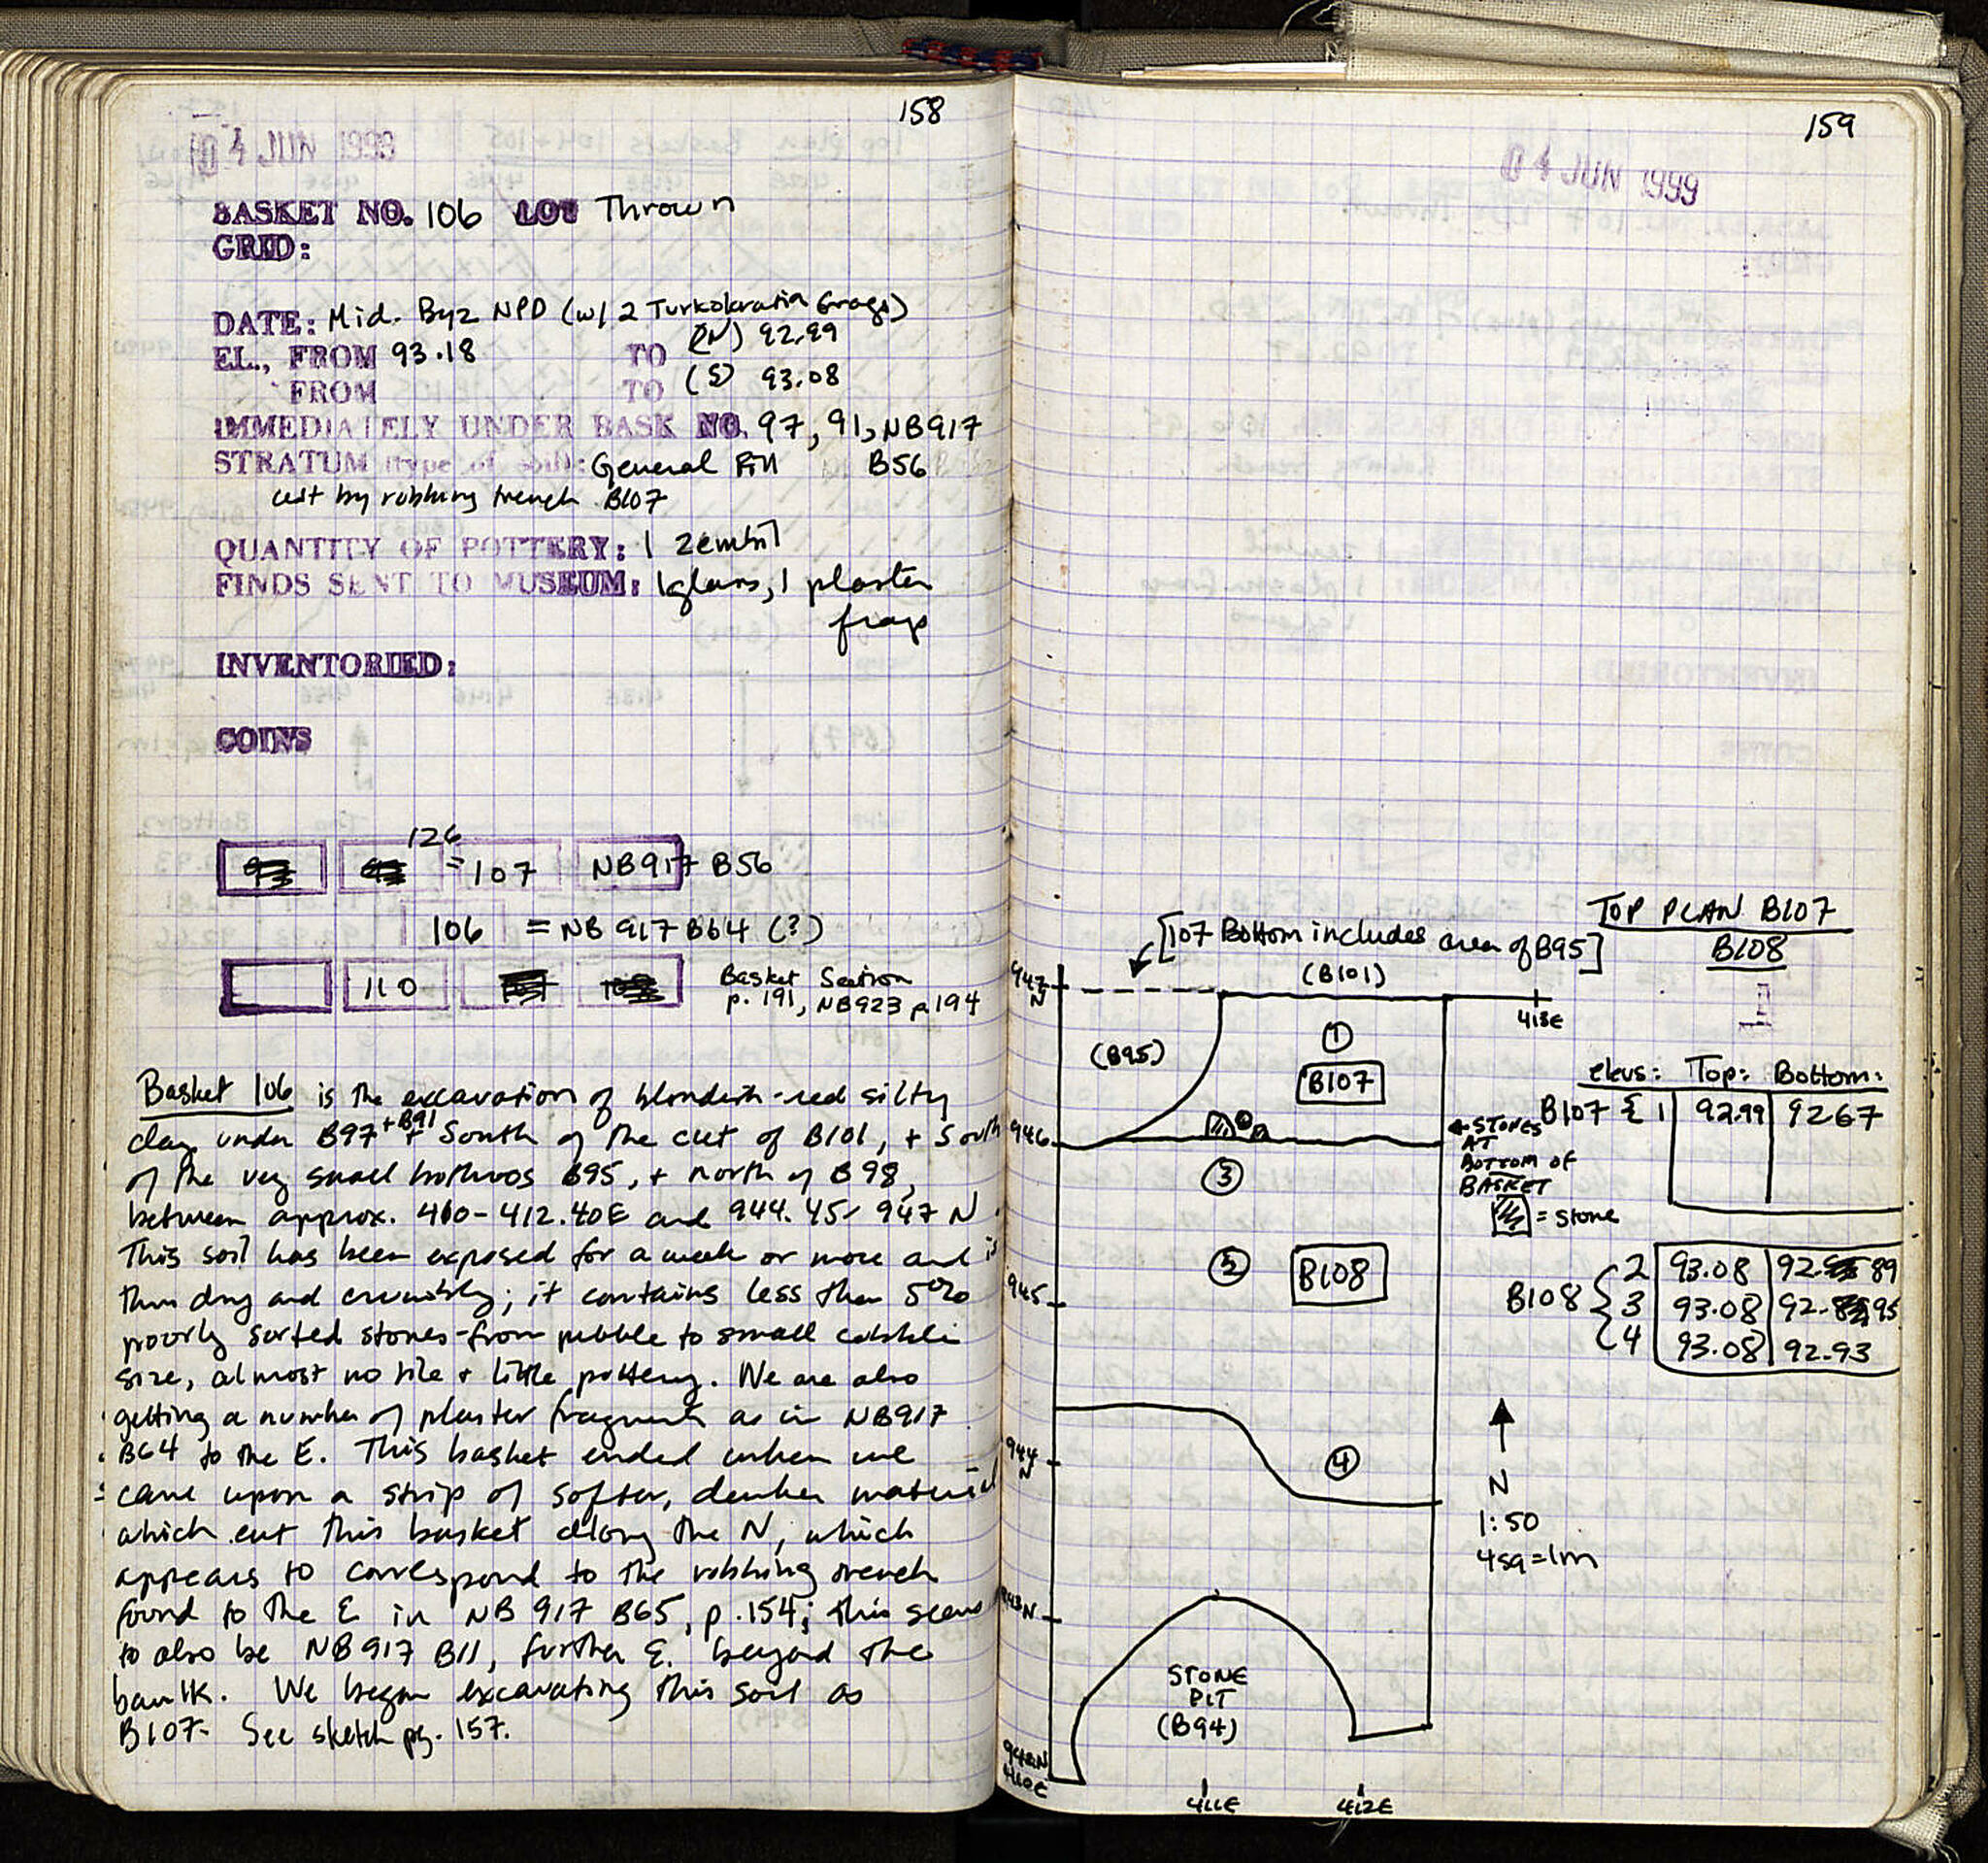 158
04 JUN 1999
BASKET NO. 106 LOT Thrown
GRID:
DATE: Mid. Byz NPD (w/ 2 Turkokratia frags)
EL., FROM 93.18 TO (N) 92.99
FROM TO (S) 93.08
IMMEDIATELY UNDER BASK NO. 97, 91, NB917
STRATUM (type of soil): General Fill B56
cut by robbing trench B107
QUANTITY OF POTTERY: 1 zembil
FINDS SENT TO MUSEUM: 1 glass, 1 plaster
frags
INVENTORIED:
COINS
126
= 107 NB917 B56
106 = NB 917 B64 (?)
110
Basket Section
p. 191, NB923 p 194
Basket 106 is the excavation of blondish-red silty
clay under B97 + B91 + South of the cut of B101, + South
of the very small bothros B95, + north of B98,
between approx. 410-412.40E and 944.45/947 N.
This soil has been exposed for a week or more and is
thus dry and crumbly; it contains less than 5%
poorly sorted stones - from pebble to small cobble
size, almost no tile + little pottery. We are also
getting a number of plaster fragments as in NB917
B64 to the E. This basket ended when we
came upon a strip of softer, darker material
which cut this basket along the N, which
appears to correspond to the robbing trench
found to the E in NB 917 B65, p.154; this seems
to also be NB917 B11, further E. beyond the
baulk. We began excavating this soil as
B107. See sketch pg. 157.
159
04 JUN 1999
TOP PLAN B107
B108
[107 Bottom includes area of B95]
(B101)
947
N
413E
(B95)
①
B107
elevs: Top: Bottom:
B107 { 1 92.99 92.67
946
← STONES
AT
BOTTOM OF
BASKET
= stone
③
② B108
945
B108 { 2 93.08 92.89
3 93.08 92.95
4 93.08 92.93
944
N
④
N
1:50
4sq=1m
943N
STONE
PIT
(B94)
942N
410E
411E
412E